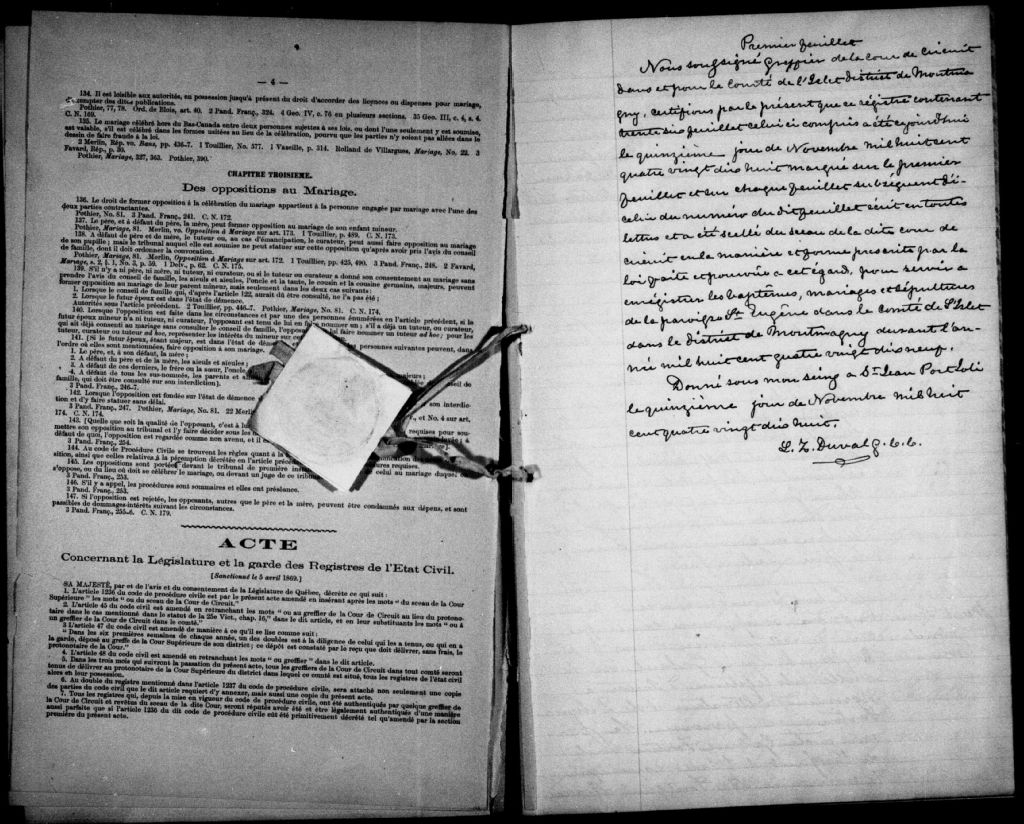 — 4 —
134. Il est loisible aux autorités, en possession jusqu'à présent du droit d'accorder des licences ou dispenses pour mariage,
d'exempter des dites publications.
Pothier, 77, 78. Ord. de Blois, art. 40. 2 Pand. Franç., 324. 4 Geo. IV, c. 76 en plusieurs sections. 35 Geo. III, c. 4, s. 4.
C. N. 169.
135. Le mariage célébré hors du Bas-Canada entre deux personnes sujettes à ses lois, ou dont l'une seulement y est soumise,
est valable, s'il est célébré dans les formes usitées au lieu de la célébration, pourvu que les parties n'y soient pas allées dans le
dessein de faire fraude à la loi.
2 Merlin, Rép. vo. Bans, pp. 436-7. 1 Toullier, No. 577. 1 Vazeille, p. 314. Rolland de Villargues, Mariage, No. 22. 3
Favard, Rép., p. 30.
Pothier, Mariage, 327, 363. Pothier, 390.
CHAPITRE TROISIEME.
Des oppositions au Mariage.
136. Le droit de former opposition à la célébration du mariage appartient à la personne engagée par mariage avec l'une des
deux parties contractantes.
Pothier, No. 81. 3 Pand. Franç., 241. C. N. 172.
137. Le père, et à défaut du père, la mère, peut former opposition au mariage de son enfant mineur.
Pothier, Mariage, 81. Merlin, vo. Opposition à Mariage sur art. 173. 1 Toullier, p. 489. C. N. 173.
138. A défaut de père et de mère, le tuteur ou, au cas d'émancipation, le curateur, peut aussi faire opposition au mariage
de son pupille; mais le tribunal auquel elle est soumise ne peut statuer sur cette opposition qu'après avoir pris l'avis du conseil
de famille, dont il doit ordonner la convocation.
Pothier, Mariage, 81. Merlin, Opposition à Mariage sur art. 172. 1 Toullier, pp. 425, 490. 3 Pand. Franç., 248. 2 Favard,
Mariage, s. 2, § 1, No. 3, p. 59. 1 Delv., p. 62. C. N. 175.
139. S'il n'y a ni père, ni mère, ni tuteur, ni curateur, ou si le tuteur ou curateur a donné son consentement au mariage sans
prendre l'avis du conseil de famille, les aïeuls et aïeules, l'oncle et la tante, le cousin et la cousine germains, majeurs, peuvent
former opposition au mariage de leur parent mineur, mais seulement dans les deux cas suivants:
1. Lorsque le conseil de famille qui, d'après l'article 122, aurait dû être consulté, ne l'a pas été;
2. Lorsque le futur époux est dans l'état de démence.
Autorités sous l'article précédent. 2 Toullier, pp. 486-7. Pothier, Mariage, No. 81. C. N. 174.
140. Lorsque l'opposition est faite dans les circonstances et par une des personnes énumérées en l'article précédent, si le
futur époux mineur n'a ni tuteur, ni curateur, l'opposant est tenu de lui en faire nommer un; s'il a déjà un tuteur, ou curateur,
qui ait déjà consenti au mariage sans consulter le conseil de famille, l'opposant
tuteur, ou curateur ad hoc, représenter les intérêts du mineur sur
141. [Si le futur époux, étant majeur, est dans l'état de démence
l'ordre où elles sont mentionnées, faire opposition à son mariage.
1. Le père, et, à son défaut, la mère;
2. A défaut du père et de la mère, les aïeuls et aïeules;
3. A défaut de ces derniers, le frère ou la sœur, l'oncle
4. A défaut de tous les sus-nommés, les parents et
famille, qui doit être consulté sur son interdiction].
3 Pand. Franç., 246-7.
142. Lorsque l'opposition est fondée sur l'état de démence
tion et d'y faire statuer sans délai.
3 Pand. Franç., 247. Pothier, Mariage, No. 81. 22 Merlin
174. C. N. 174.
143. [Quelle que soit la qualité de l'opposant, c'est à lui
mettre son opposition au tribunal et l'y faire décider sous les
défaut de quoi, l'opposition est regardée comme non avenu, et il
3 Pand. Franç., 254.
144. Au code de Procédure Civile se trouvent les règles quant à la
sition, ainsi que celles relatives à la péremption décrétée en l'article
145. Les oppositions sont portées devant le tribunal de première
s'oppose, ou du lieu où doit se célébrer le mariage, ou devant un juge de ce tribunal.
3 Pand. Franç., 253.
146. S'il y a appel, les procédures sont sommaires et elles ont préséance.
3 Pand. Franç., 253.
147. Si l'opposition est rejetée, les opposants, autres que le père et la mère, peuvent être condamnés aux dépens, et sont
passibles de dommages-intérêts suivant les circonstances.
3 Pand. Franç., 255-6. C. N. 179.
ACTE
Concernant la Législature et la garde des Registres de l'Etat Civil.
[Sanctionné le 5 avril 1869.]
SA MAJESTÉ, par et de l'avis et du consentement de la Législature de Québec, décrète ce qui suit:
1. L'article 1236 du code de procédure civile est par le présent acte amendé en insérant après les mots "du sceau de la Cour
Supérieure" les mots "ou du sceau de la Cour de Circuit."
2. L'article 45 du code civil est amendé en retranchant les mots "ou au greffier de la Cour de Circuit au lieu du protono-
taire dans le cas mentionné dans le statut de la 25e Vict., chap. 16," dans le dit article, et en leur substituant les mots "ou à
un greffier de la Cour de Circuit dans le comté."
3 L'article 47 du code civil est amendé de manière à ce qu'il se lise comme suit:
"Dans les six premières semaines de chaque année, un des doubles est à la diligence de celui qui les a tenus, ou qui en a
la garde, déposé au greffe de la Cour Supérieure de son district; ce dépôt est constaté par le reçu que doit délivrer, sans frais, le
protonotaire de la Cour."
4. L'article 48 du code civil est amendé en retranchant les mots "ou greffier" dans le dit article.
5. Dans les trois mois qui suivront la passation du présent acte, tous les greffiers de la Cour de Circuit dans tout comté seront
tenus de délivrer au protonotaire de la Cour Supérieure du district dans lequel ce comté est situé, tous les registres de l'état civil
alors en leur possession.
6. Au double du registre mentionné dans l'article 1237 du code de procédure civile, sera attaché non seulement une copie
des parties du code civil que le dit article requiert d'y annexer, mais aussi une copie du présent acte.
7. Tous les registres qui, depuis la mise en vigueur du code de procédure civile, ont été authentiqués par quelque greffier de
la Cour de Circuit et revêtus du sceau de la dite Cour, seront réputés avoir été et être légalement authentiqués d'une manière
aussi parfaite que si l'article 1236 du dit code de procédure civile eût été primitivement décrété tel qu'amendé par la section
première du présent acte.
Premier feuillet
Nous soussigné Greffier de la cour de circuit
dans et pour le Comté de l'Islet district de Montma
gny, certifions par le présent que ce régistre contenant
trente six feuillet celui ci compris a été ce jourd'hui
le quinzième jour de Novembre mil huit cent
quatre vingt dix huit marqué sur le premier
feuillet et sur chaque feuillet subséquent di-
celui du numéro du dit feuillet écrit en toutes
lettres et a été scellé du sceau de la dite cour de
circuit en la manière et forme prescrite par la
loi faite et pourvue a cet égard, pour servir a
enrégistrer les baptêmes, mariages et sépultures
de la paroisse St Eugène dans le comté de l'Islet
dans le district de Montmagny durant l'an-
née mil huit cent quatre vingt dix neuf.
Donné sous mon seing a St Jean Port Joli
le quinzième jour de Novembre mil huit
cent quatre vingt dix huit.
L. Z. Duval g. c. c.